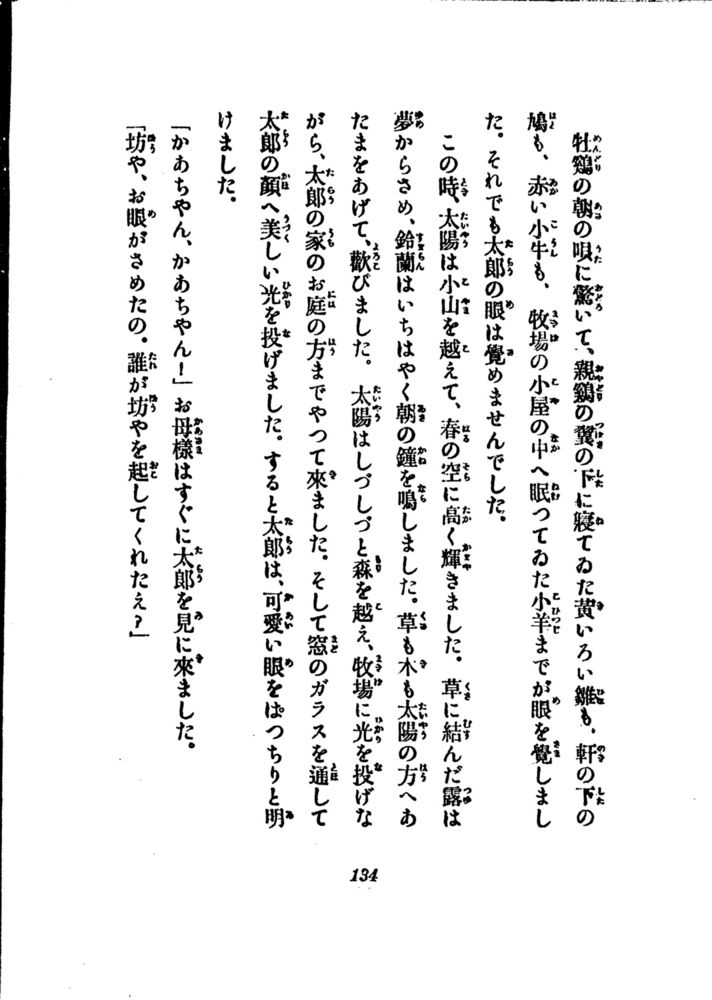 牡鷄の朝の唄に驚いて、親鷄の翼の下に寢てゐた黄いろい雛も、軒の下の
鳩も、赤い小牛も、牧場の小屋の中へ眠つてゐた小羊までが眼を覺しまし
た。それでも太郎の眼は覺めませんでした。
この時、太陽は小山を越えて、春の空に高く輝きました。草に結んだ露は
夢からさめ、鈴蘭はいちはやく朝の鐘を鳴しました。草も木も太陽の方へあ
たまをあげて、歡びました。太陽はしづしづと森を越え、牧場に光を投げな
がら、太郎の家のお庭の方までやつて來ました。そして窓のガラスを通して
太郎の顏へ美しい光を投げました。すると太郎は、可愛い眼をぱつちりと明
けました。
「かあちやん、かあちやん!」お母樣はすぐに太郎を見に來ました。
「坊や、お眼がさめたの。誰が坊やを起してくれたえ?」
134